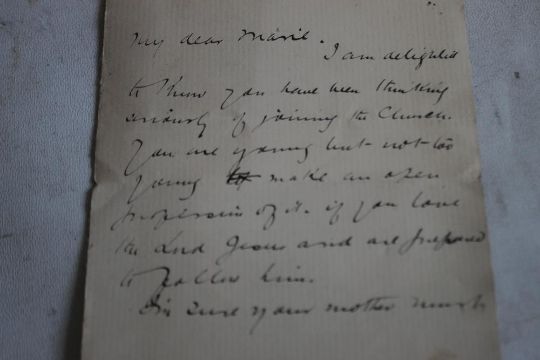 My dear Marie.
I am delighted
to know you have been thinking
seriously of joining the Church.
You are young but not too
young to make an open
profession of it. if you love
the Lord Jesus and are prepared
to follow him.
I'm sure your mother much